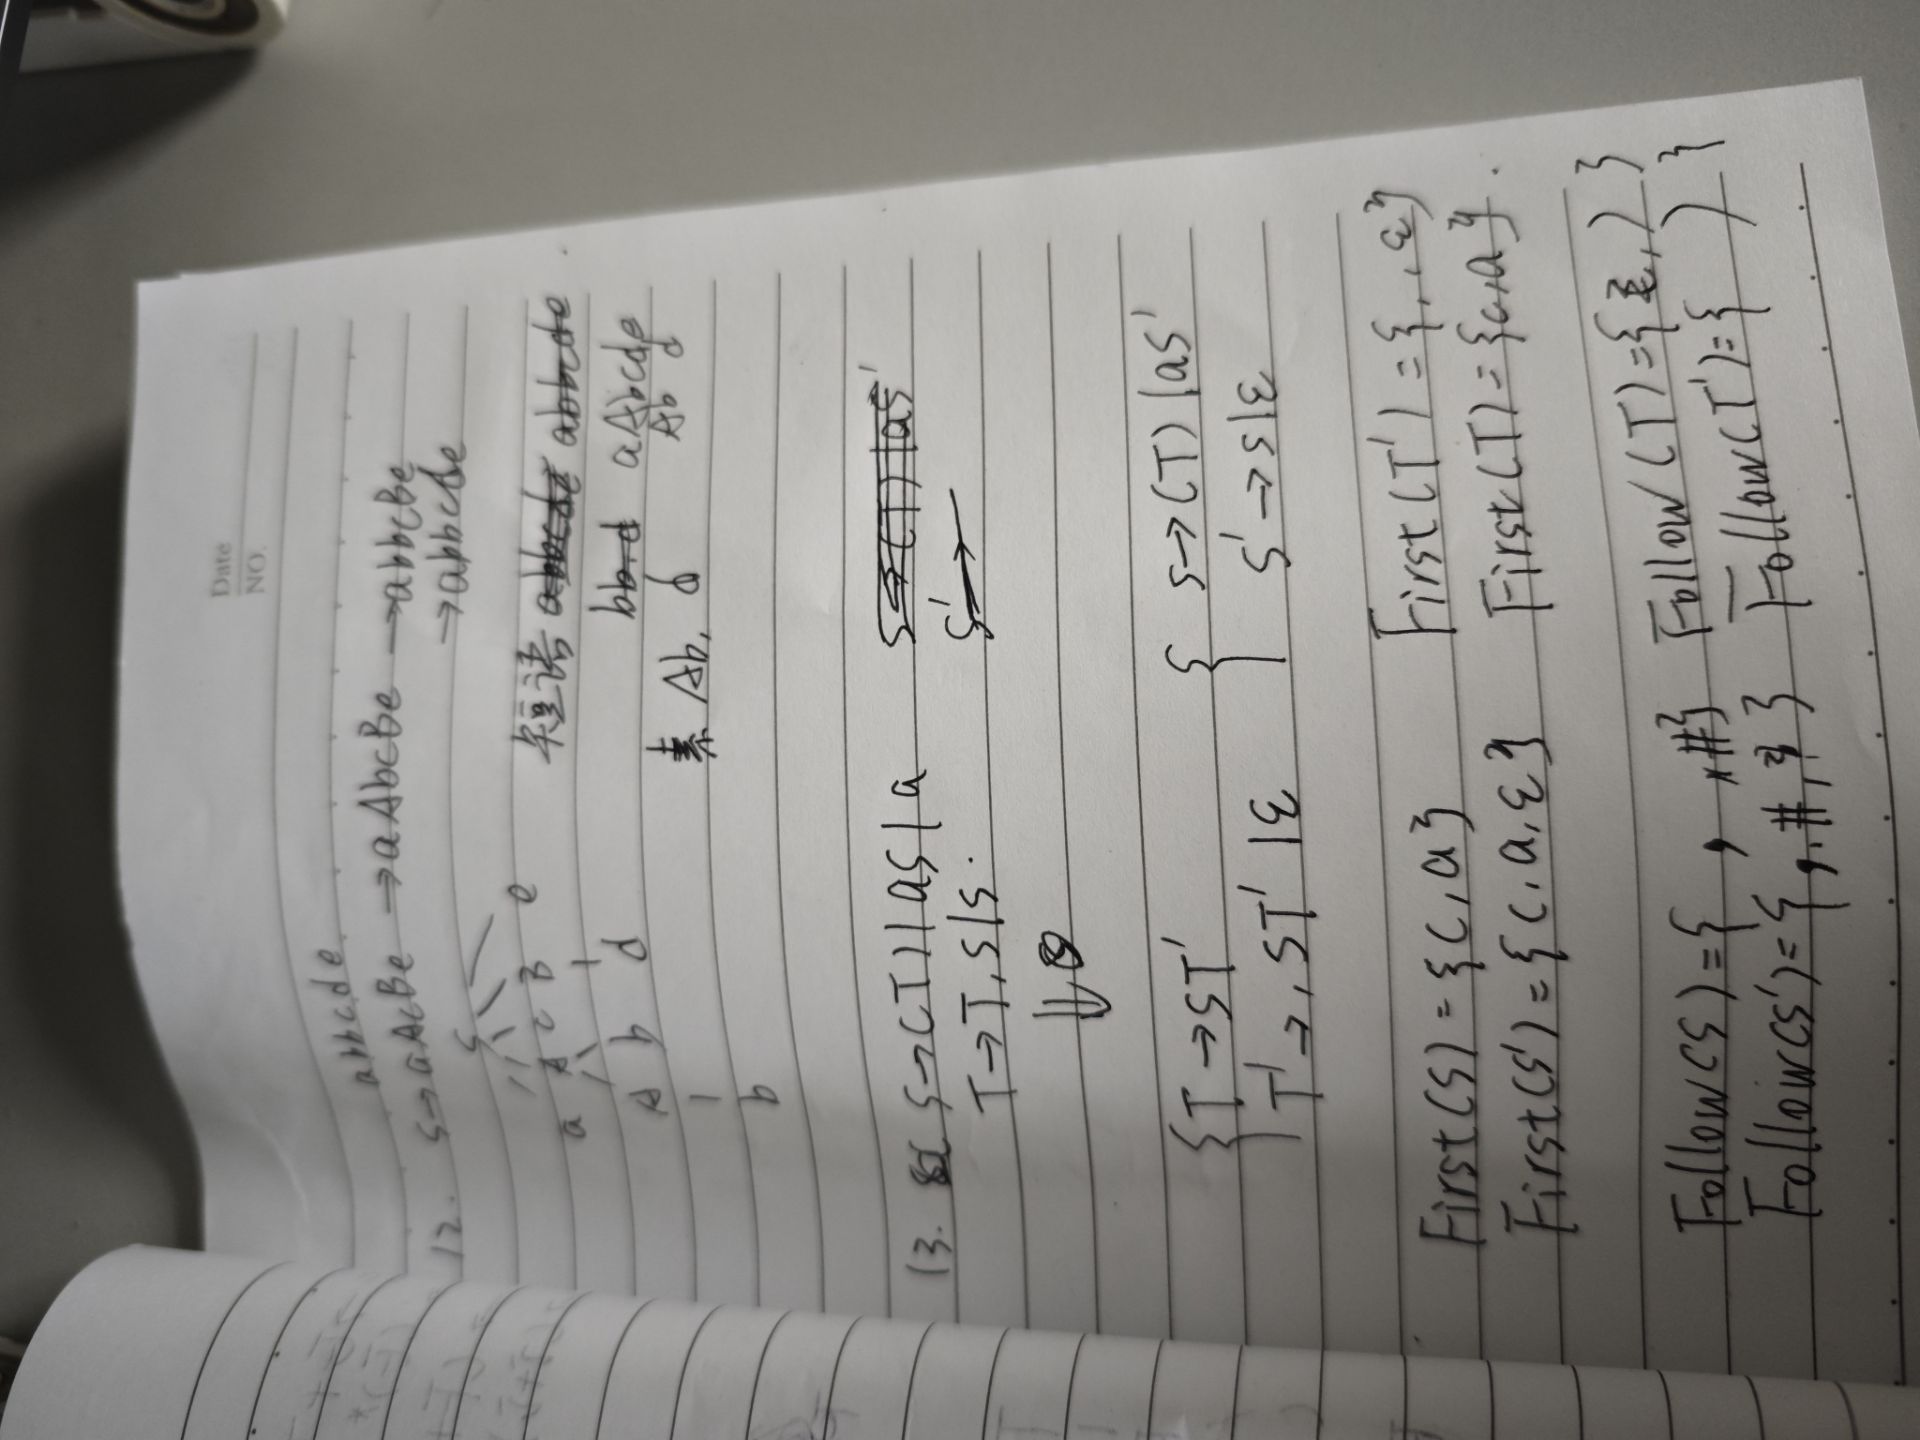 Date
NO.
abbcde
12. S→aAcBe →aAbcBe →abbcBe
→abbcde
S
a A c B e
短语 abbcde abbcde
A b d
bbcd aAbcde
Ab d
b
素 Ab, d
13. S→(T)|aS|a
S→(T)|aS'
T→T,S|S.
S'→
⇓
{T→ST'
T'→,ST'|ε
{S→(T)|aS'
S'→S|ε
First(S)={(,a}
First(T')={,,ε}
First(S')={(,a,ε}
First(T)={(,a}.
Follow(S)={,,#}
Follow(T)={)}
Follow(S')={,,#,}
Follow(T')={)}